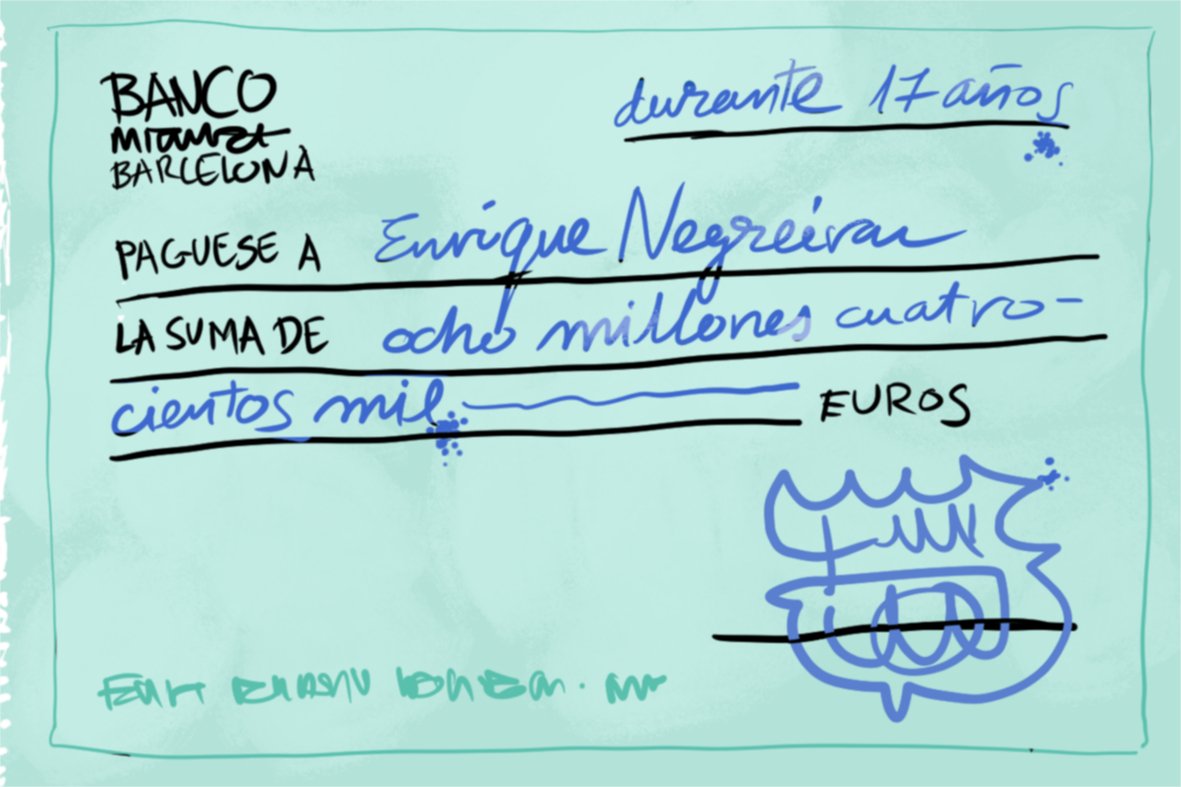 BANCO
BARCELONA
durante 17 años
PAGUESE A Enrique Negreira
LA SUMA DE ocho millones cuatro-
cientos mil EUROS